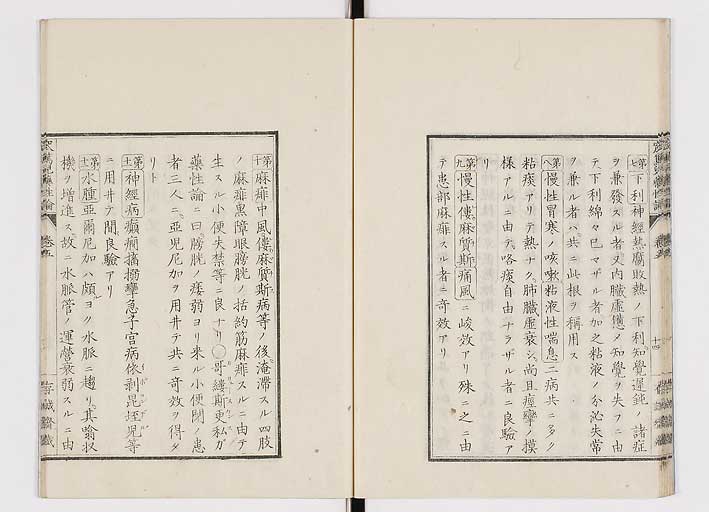 第七 下利神經熱腐敗熱ノ下利知覺遲鈍ノ諸症
ヲ兼發スル者又内臟虛憊ノ知覺ヲ失フニ由
テ下利綿々已マザル者加之粘液ノ分泌失常
ヲ兼ル者ハ共ニ此根ヲ稱用ス
第八 慢性冒寒ノ咳嗽粘液性喘息 二病共ニ多ク
粘痰アリテ熱ナク肺臟虛衰シ尚且痙攣ノ摸
樣アルニ由テ咯痰自由ナラザル者ニ良驗ア
リ
第九 慢性僂麻質斯痛風ニ峻效アリ殊ニ之ニ由
テ患部麻痺スル者ニ奇效アリ
第十 麻痺中風僂麻質斯病等ノ後淹滯スル四肢
ノ麻痺黑障眼膀胱ノ括約筋麻痺スルニ由テ
生スル小便失禁等ニ良ナリ○哥縷斯更私ガ
藥性論ニ曰膀胱ノ痿弱ヨリ來ル小便閉ノ患
者三人ニ亞兒尼加ヲ用井テ共ニ奇效ヲ得タ
リト
第十一 神經病癲癇搐搦攣急子宮病依剥昆垤兒等
ニ用井テ間良驗アリ
第十二 水腫亞爾尼加ハ頗ヨク水脈ニ趨リ其噏收
機ヲ增進ス故ニ水脈管ノ運營衰弱スルニ由
卷五
十四